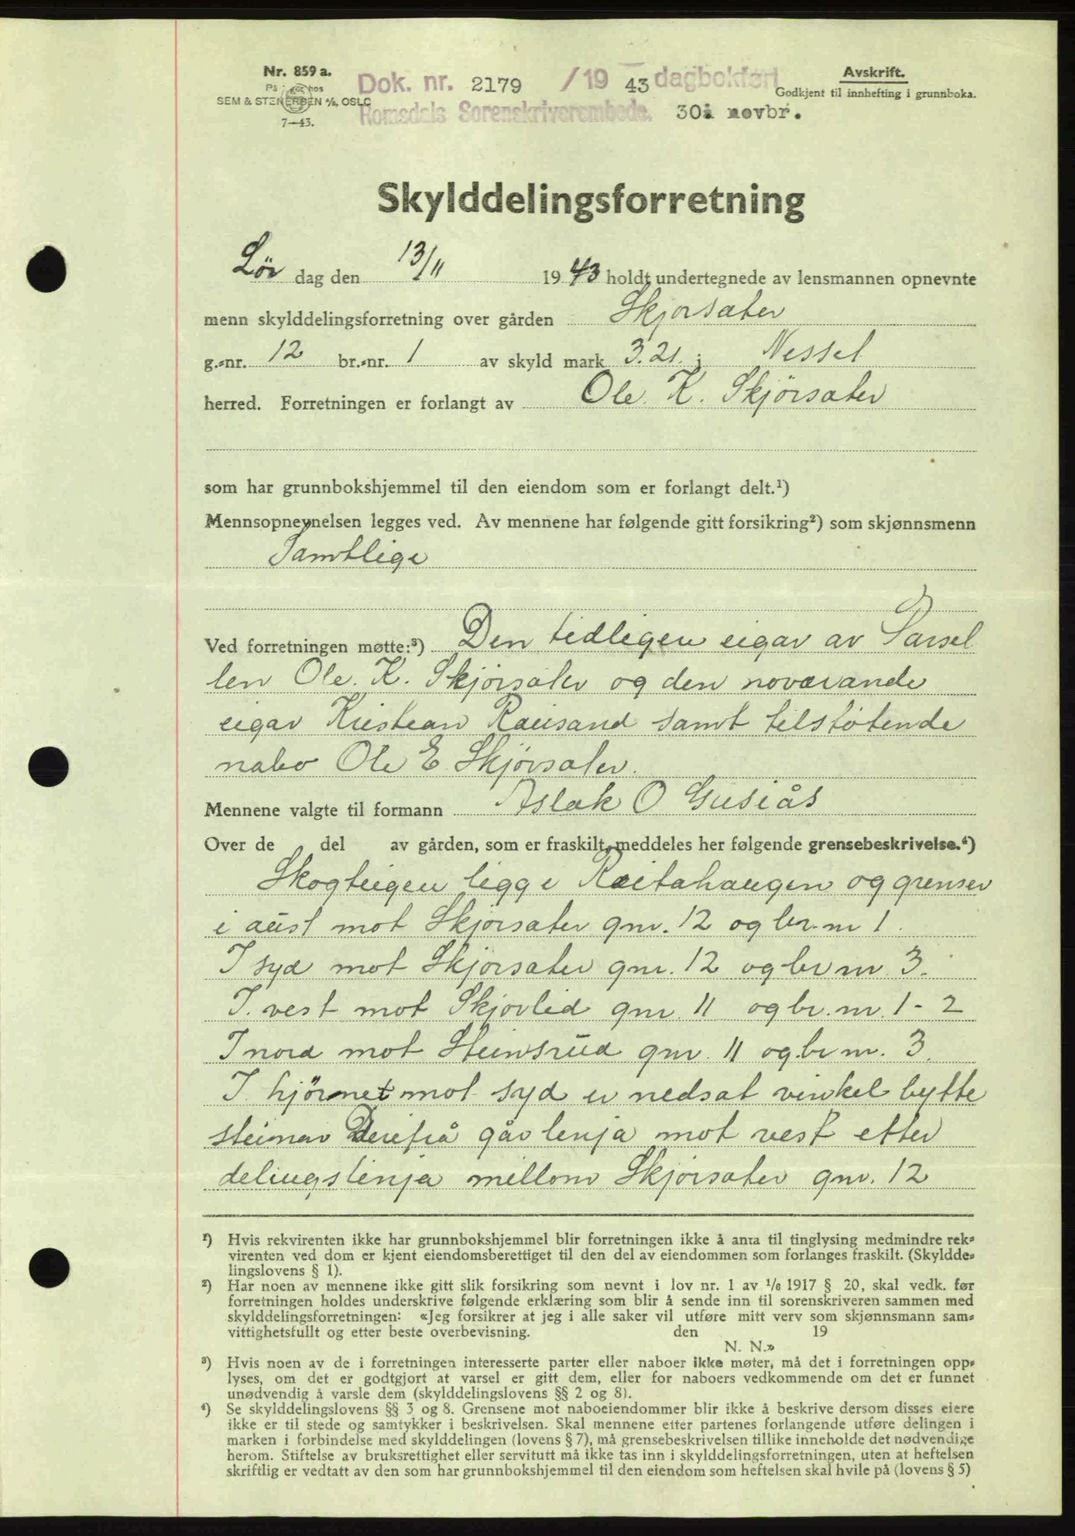 Nr. 859 a.
SEM & STENERSEN A/S, OSLO
7—43.
Dok. nr. 2179 /19 43 dagbokført
Romsdals Sorenskriverembede. 30å novbr.
Avskrift.
Godkjent til innhefting i grunnboka.
Skylddelingsforretning
Lør dag den 13/11 19 43 holdt undertegnede av lensmannen opnevnte
menn skylddelingsforretning over gården Skjørsæter
g.-nr. 12 br.-nr. 1 av skyld mark 3.21. i Nesset
herred. Forretningen er forlangt av Ole. K. Skjørsæter
som har grunnbokshjemmel til den eiendom som er forlangt delt.¹)
Mennsopnevnelsen legges ved. Av mennene har følgende gitt forsikring²) som skjønnsmenn
Samtlige
Ved forretningen møtte:³) Den tidligen eigar av Parsel
len Ole. K. Skjørsæter og den noværande
eigar Kristean Rausand samt tilstøtende
nabo Ole E Skjørsæter.
Mennene valgte til formann Aslak O Gusiås
Over de del av gården, som er fraskilt, meddeles her følgende grensebeskrivelse.⁴)
Skogteigen ligg i Reitahaugen og grenser
i aust mot Skjørsæter gnr. 12 og br.nr 1.
I syd mot Skjørsæter gnr. 12 og br nr 3.
I. vest mot Skjørlid gnr. 11 og br. nr. 1 - 2
I nord mot Steinsrud gnr. 11 og br nr. 3.
I hjørnet mot syd er nedsat vinkel bytte
steinar Derifrå går lenja mot vest etter
delingslinja mellom Skjørsæter gnr. 12
¹) Hvis rekvirenten ikke har grunnbokshjemmel blir forretningen ikke å anta til tinglysing medmindre rek-
virenten ved dom er kjent eiendomsberettiget til den del av eiendommen som forlanges fraskilt. (Skyldde-
lingslovens § 1).
²) Har noen av mennene ikke gitt slik forsikring som nevnt i lov nr. 1 av ¹/₈ 1917 § 20, skal vedk. før
forretningen holdes underskrive følgende erklæring som blir å sende inn til sorenskriveren sammen med
skylddelingsforretningen: «Jeg forsikrer at jeg i alle saker vil utføre mitt verv som skjønnsmann sam-
vittighetsfullt og etter beste overbevisning. den 19
N. N.»
³) Hvis noen av de i forretningen interesserte parter eller naboer ikke møter, må det i forretningen opp-
lyses, om det er godtgjort at varsel er gitt dem, eller for naboers vedkommende om det er funnet
unødvendig å varsle dem (skylddelingslovens §§ 2 og 8).
⁴) Se skylddelingslovens §§ 3 og 8. Grensene mot naboeiendommer blir ikke å beskrive dersom disses eiere
ikke er til stede og samtykker i beskrivelsen. Skal mennene etter partenes forlangende utføre delingen i
marken i forbindelse med skylddelingen (lovens § 7), må grensebeskrivelsen tillike inneholde det nødvendige
herom. Stiftelse av bruksrettighet eller servitutt må ikke tas inn i skylddelingsforretningen, uten at heftelsen
skriftlig er vedtatt av den som har grunnbokshjemmel til den eiendom som heftelsen skal hvile på (lovens § 5)